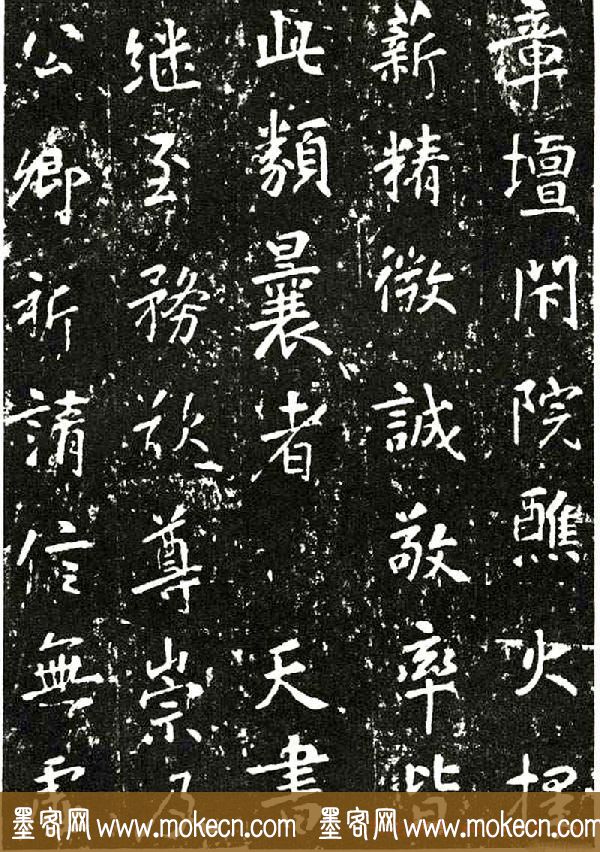 章壇閑院醮火擇
薪精微誠敬率皆
此類曩者 天書
継至務欲尊崇乃
公卿祈請信無虛
墨客网 www.mokecn.com 墨客网 www.mokecn.com